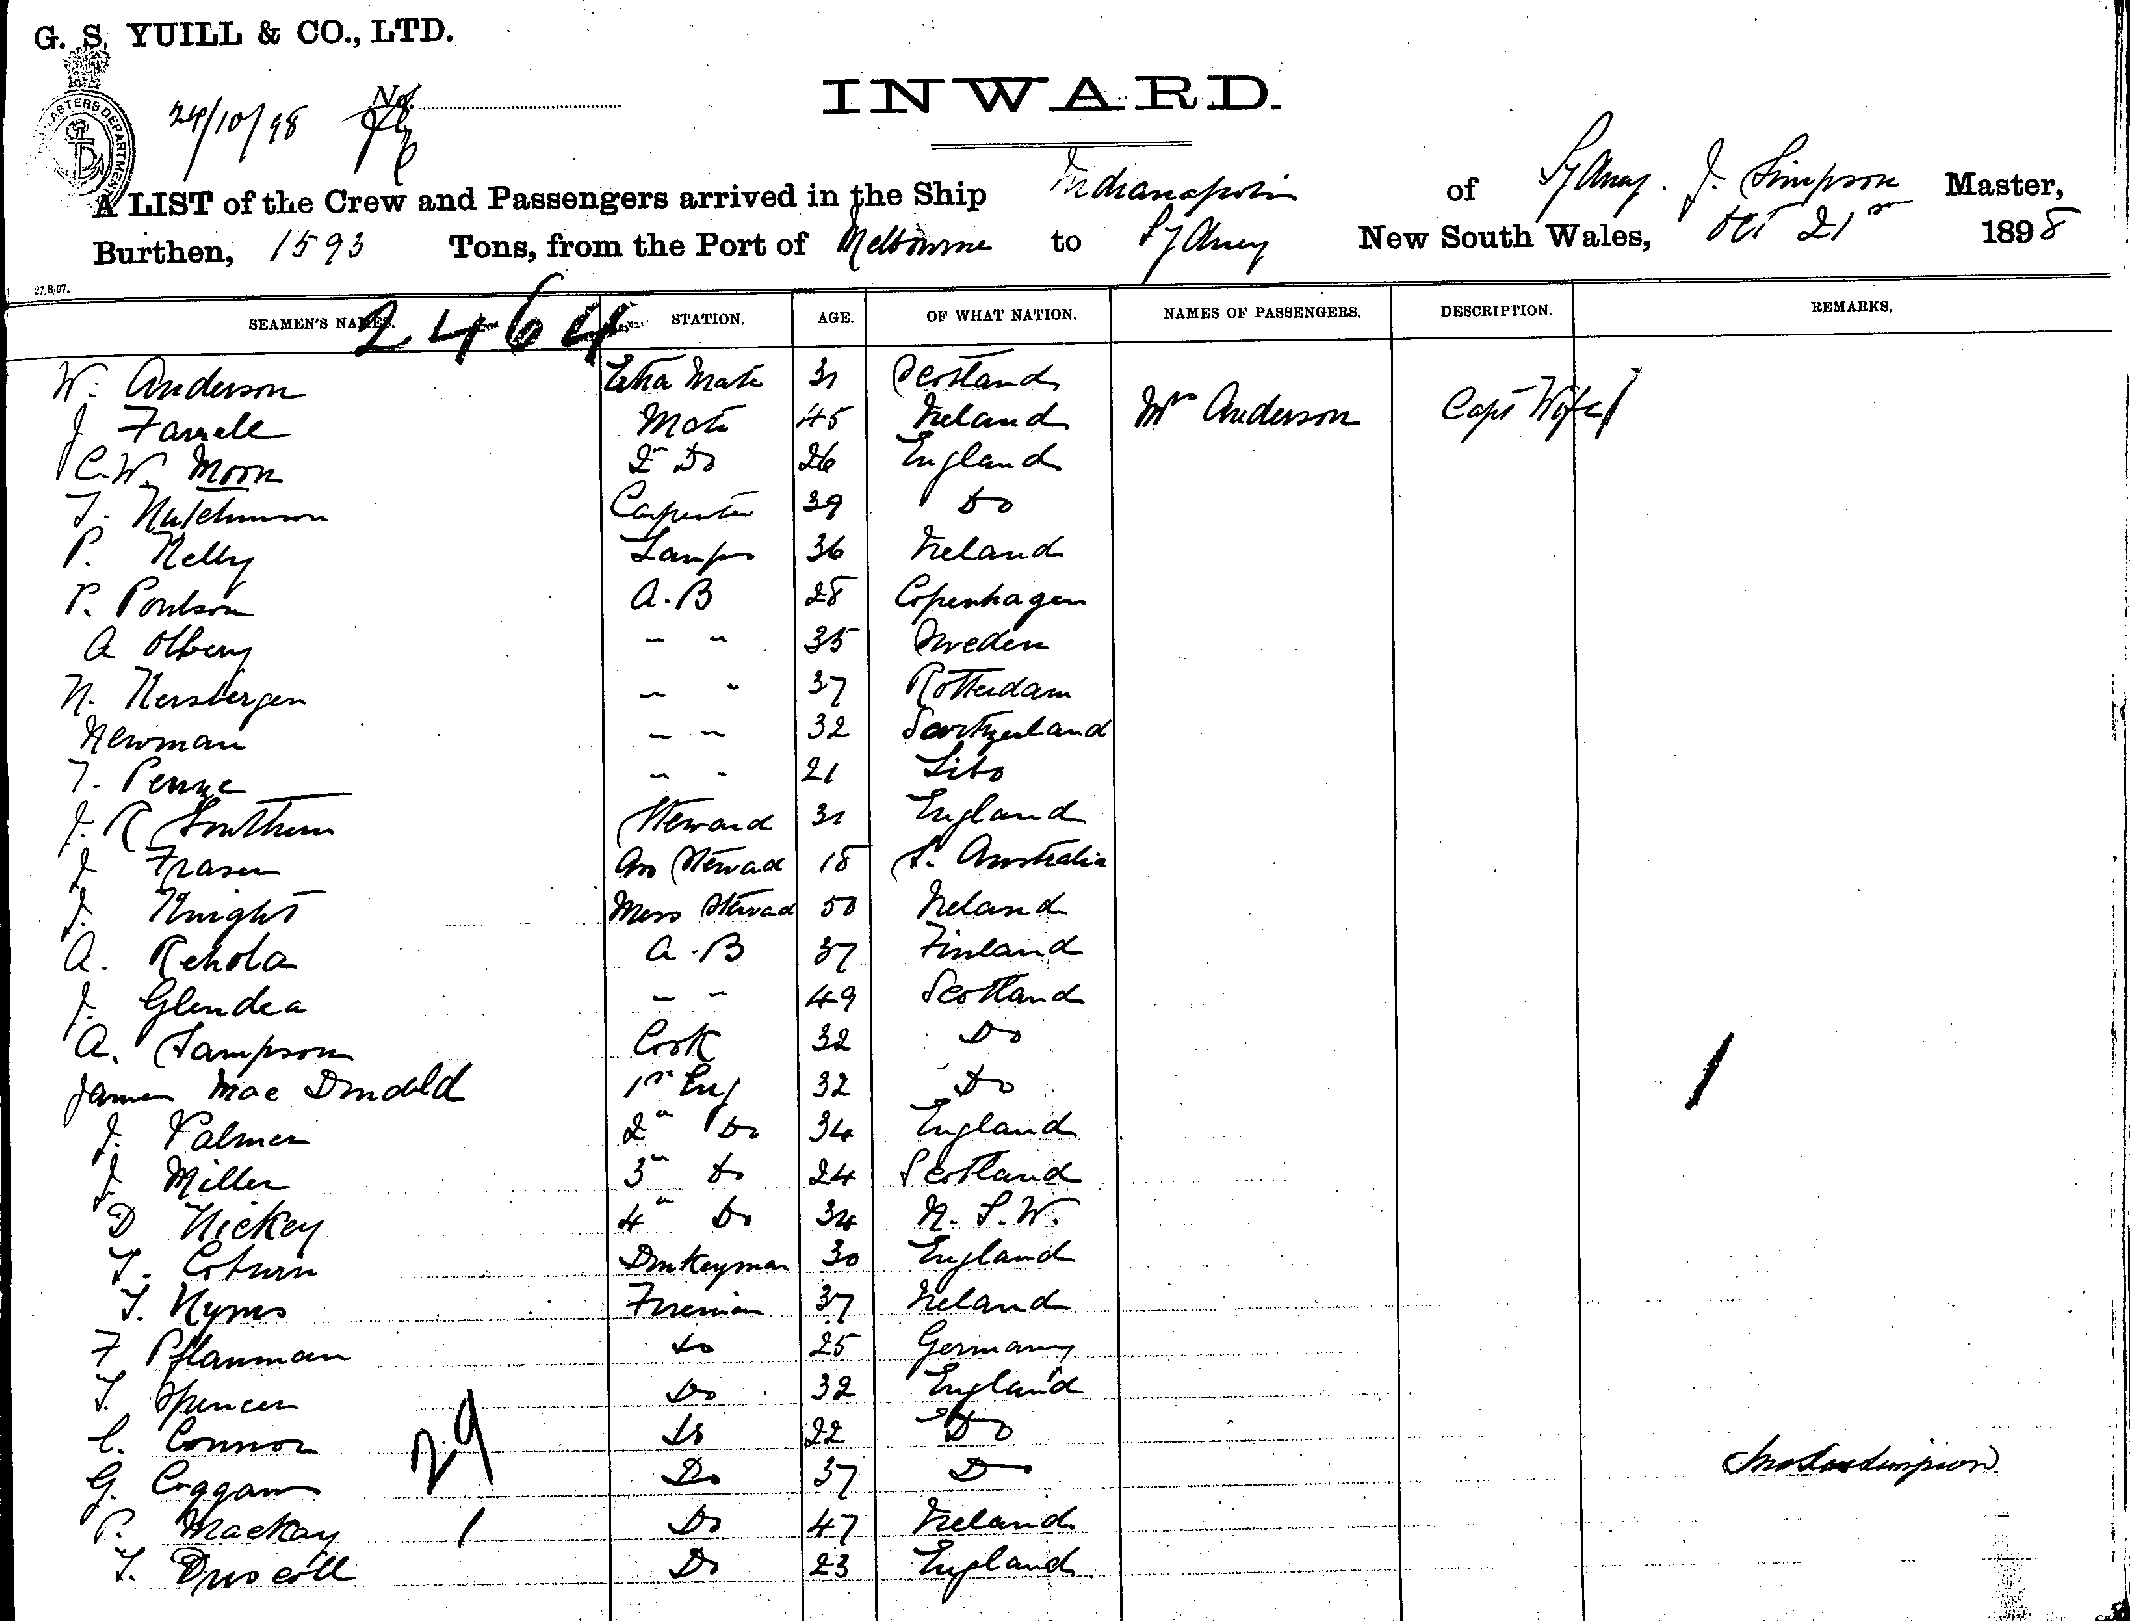 G. S. YUILL & CO., LTD.
24/10/98 No.
INWARD.
A LIST of the Crew and Passengers arrived in the Ship Indianapolis of Sydney. J. Simpson Master,
Burthen, 1593 Tons, from the Port of Melbourne to Sydney New South Wales, Oct 21st 1898
27.8.97.
2464
SEAMEN'S NAMES. STATION. AGE. OF WHAT NATION. NAMES OF PASSENGERS. DESCRIPTION. REMARKS.
W. Anderson Extra Mate 31 Scotland
J Farrell Mate 45 Ireland Mrs Anderson Capt Wife 1
C. W. Moon 2nd Do 26 England
T. Hutchinson Carpenter 39 Do
P. Kelly Lamps 36 Ireland
P. Poulson A.B 28 Copenhagen
A Olberg " " 35 Sweden
N. Kersbergen " " 37 Rotterdam
Newman " " 32 Switzerland
T. " " 21
J. R Southern Steward 31 England
J Fraser As Steward 18 S. Australia
J. Knight Mess Steward 50 Ireland
A. Rehola A.B 37 Finland
J. Glendea " " 49 Scotland
A. Sampson Cook 32 Do
James Mac Donald 1st Eng 32 Do 1
J. Palmer 2nd Do 34 England
J Miller 3rd Do 24 Scotland
D Hickey 4th Do 34 N. S. W.
T. Coburn Donkeyman 30 England
T. Kyms Fireman 37 Ireland
F Pflauman Do 25 Germany
T. Spencer Do 32 England
C. Connor Do 22 Do
29
G. Coggan Do 37 Do
P. Mackay 1 Do 47 Ireland
T. Driscoll Do 23 England